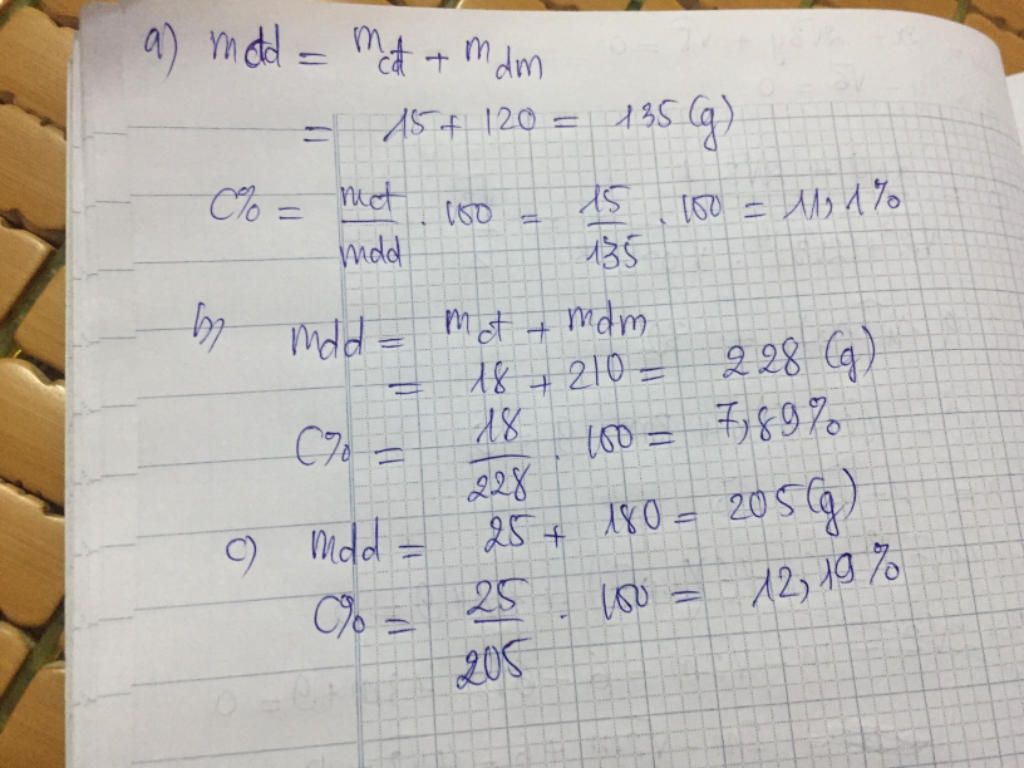 a) mdd = mct + mdm
= 15 + 120 = 135 (g)
C% = mct/mdd . 100 = 15/135 . 100 = 11,1%
b) mdd = mct + mdm
= 18 + 210 = 228 (g)
C% = 18/228 . 100 = 7,89%
c) mdd = 25 + 180 = 205 (g)
C% = 25/205 . 100 = 12,19%